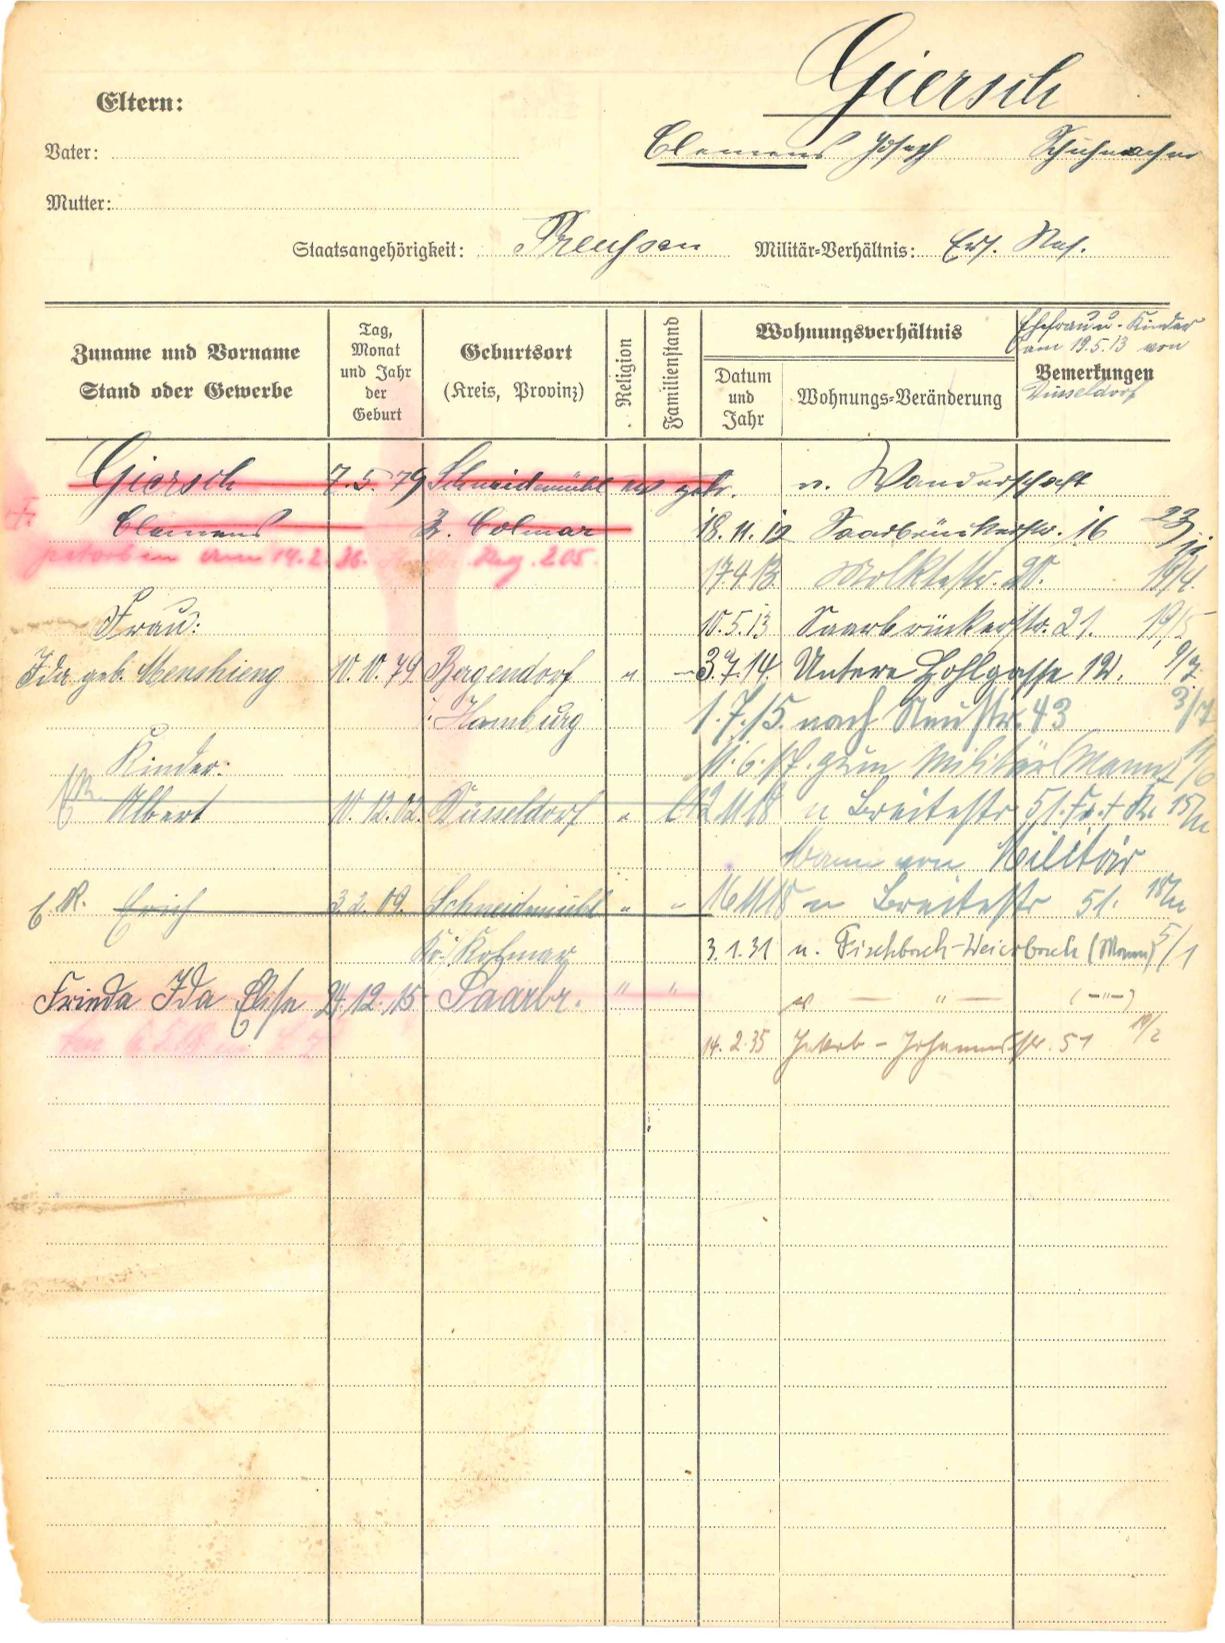 Giersch
Eltern:
Vater:
Clemens Joseph Schuhmacher
Mutter:
Staatsangehörigkeit: Preussen Militär-Verhältnis: Ers. Res.
Zuname und Vorname
Stand oder Gewerbe
Tag,
Monat
und Jahr
der
Geburt
Geburtsort
(Kreis, Provinz)
Religion
Familienstand
Wohnungsverhältnis
Datum
und
Jahr
Wohnungs-Veränderung
Ehefrau u. Kinder
am 19.5.13 von
Bemerkungen
Düsseldorf
Giersch 7.5.79 Schneidemühl v. Wanderschaft
Clemens Colmar 18.11.12 Saarbrückerstr. 16 23/11
gestorben am 14.2.36. Reg. 205.
17.4.13 Moltkestr. 20. 19/4.
Frau: 10.5.13 Saarbrückerstr. 21. 19/5
Ida geb. 10.10.79 Bergendorf " 3.7.14. Untere Hohlgasse 12. 9/7
Hamburg 1.7.15. nach Neustr. 43 3/7
Kinder: 11.6.17. zum Militär (Mann)
Albert 10.12.02. Düsseldorf " 11 18 n Breitestr 51. Fr. + K. 15/11
Mann von Militär
Erich 3.2.09. Schneidemühl " " 16 11 18 n Breitestr 51. 18/11
Kr. Kolmar 3.1.31 n. Fischbach-Weierbach (Mann) 5/1
Frieda Ida Elise 24.12.15 Saarbr. " " " (-"-)
14.2.35 Jakob-Johannesstr. 51 19/2